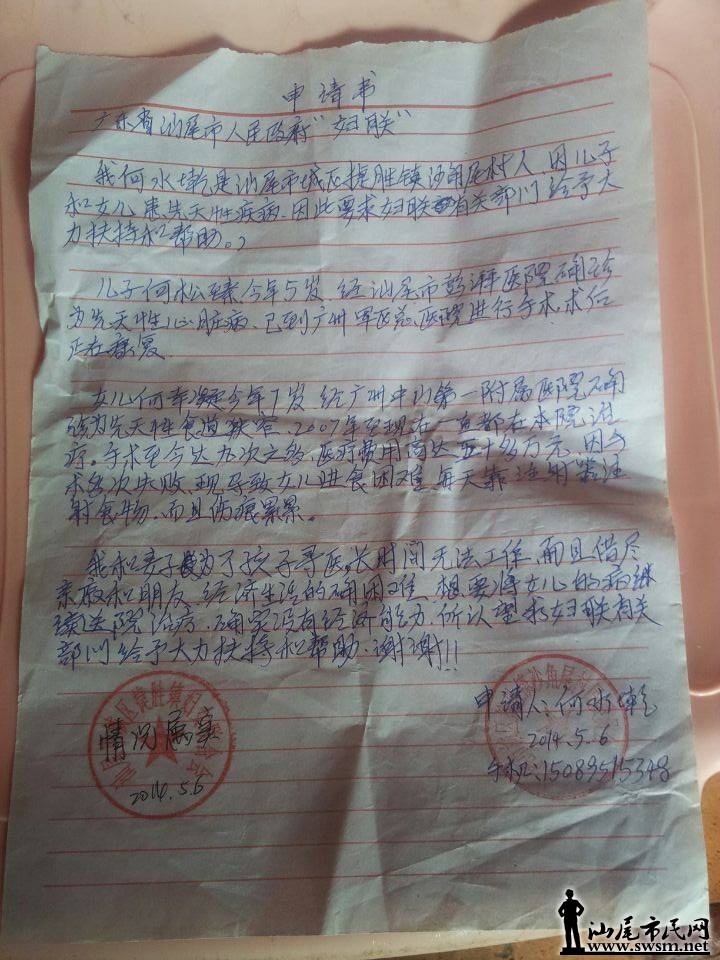 申请书
广东省汕尾市人民政府"妇联"
我何水乾是汕尾市城区捷胜镇沙角尾村人.因儿子
和女儿患先天性疾病.因此要求妇联有关部门给予大
力扶持和帮助。
儿子何松臻今年5岁 经汕尾市彭湃医院确诊
为先天性心脏病.已到广州军区总医院进行手术.术后
正在
女儿何 今年7岁 经广州中山第一附属医院确
诊为先天性食道狭窄.2007年至现在一直都在本院治
疗.手术至今达九次之多.医疗费用高达五十多万元.因手
术多次失败.现导致女儿进食困难.每天靠注射器注
射食物.而且伤痕累累。
我和妻子为了孩子寻医.长时间无法工作.而且借尽
亲戚和朋友.经济生活的确困难.想要将女儿的病继
续送院治疗.确实没有经济能力.所认望求妇联有关
部门给予大力扶持和帮助.谢谢!!!
情况属实
2014.5.6
申请人:何水乾
2014.5.6
手机:15089515348
汕尾市民网
www.swsm.net